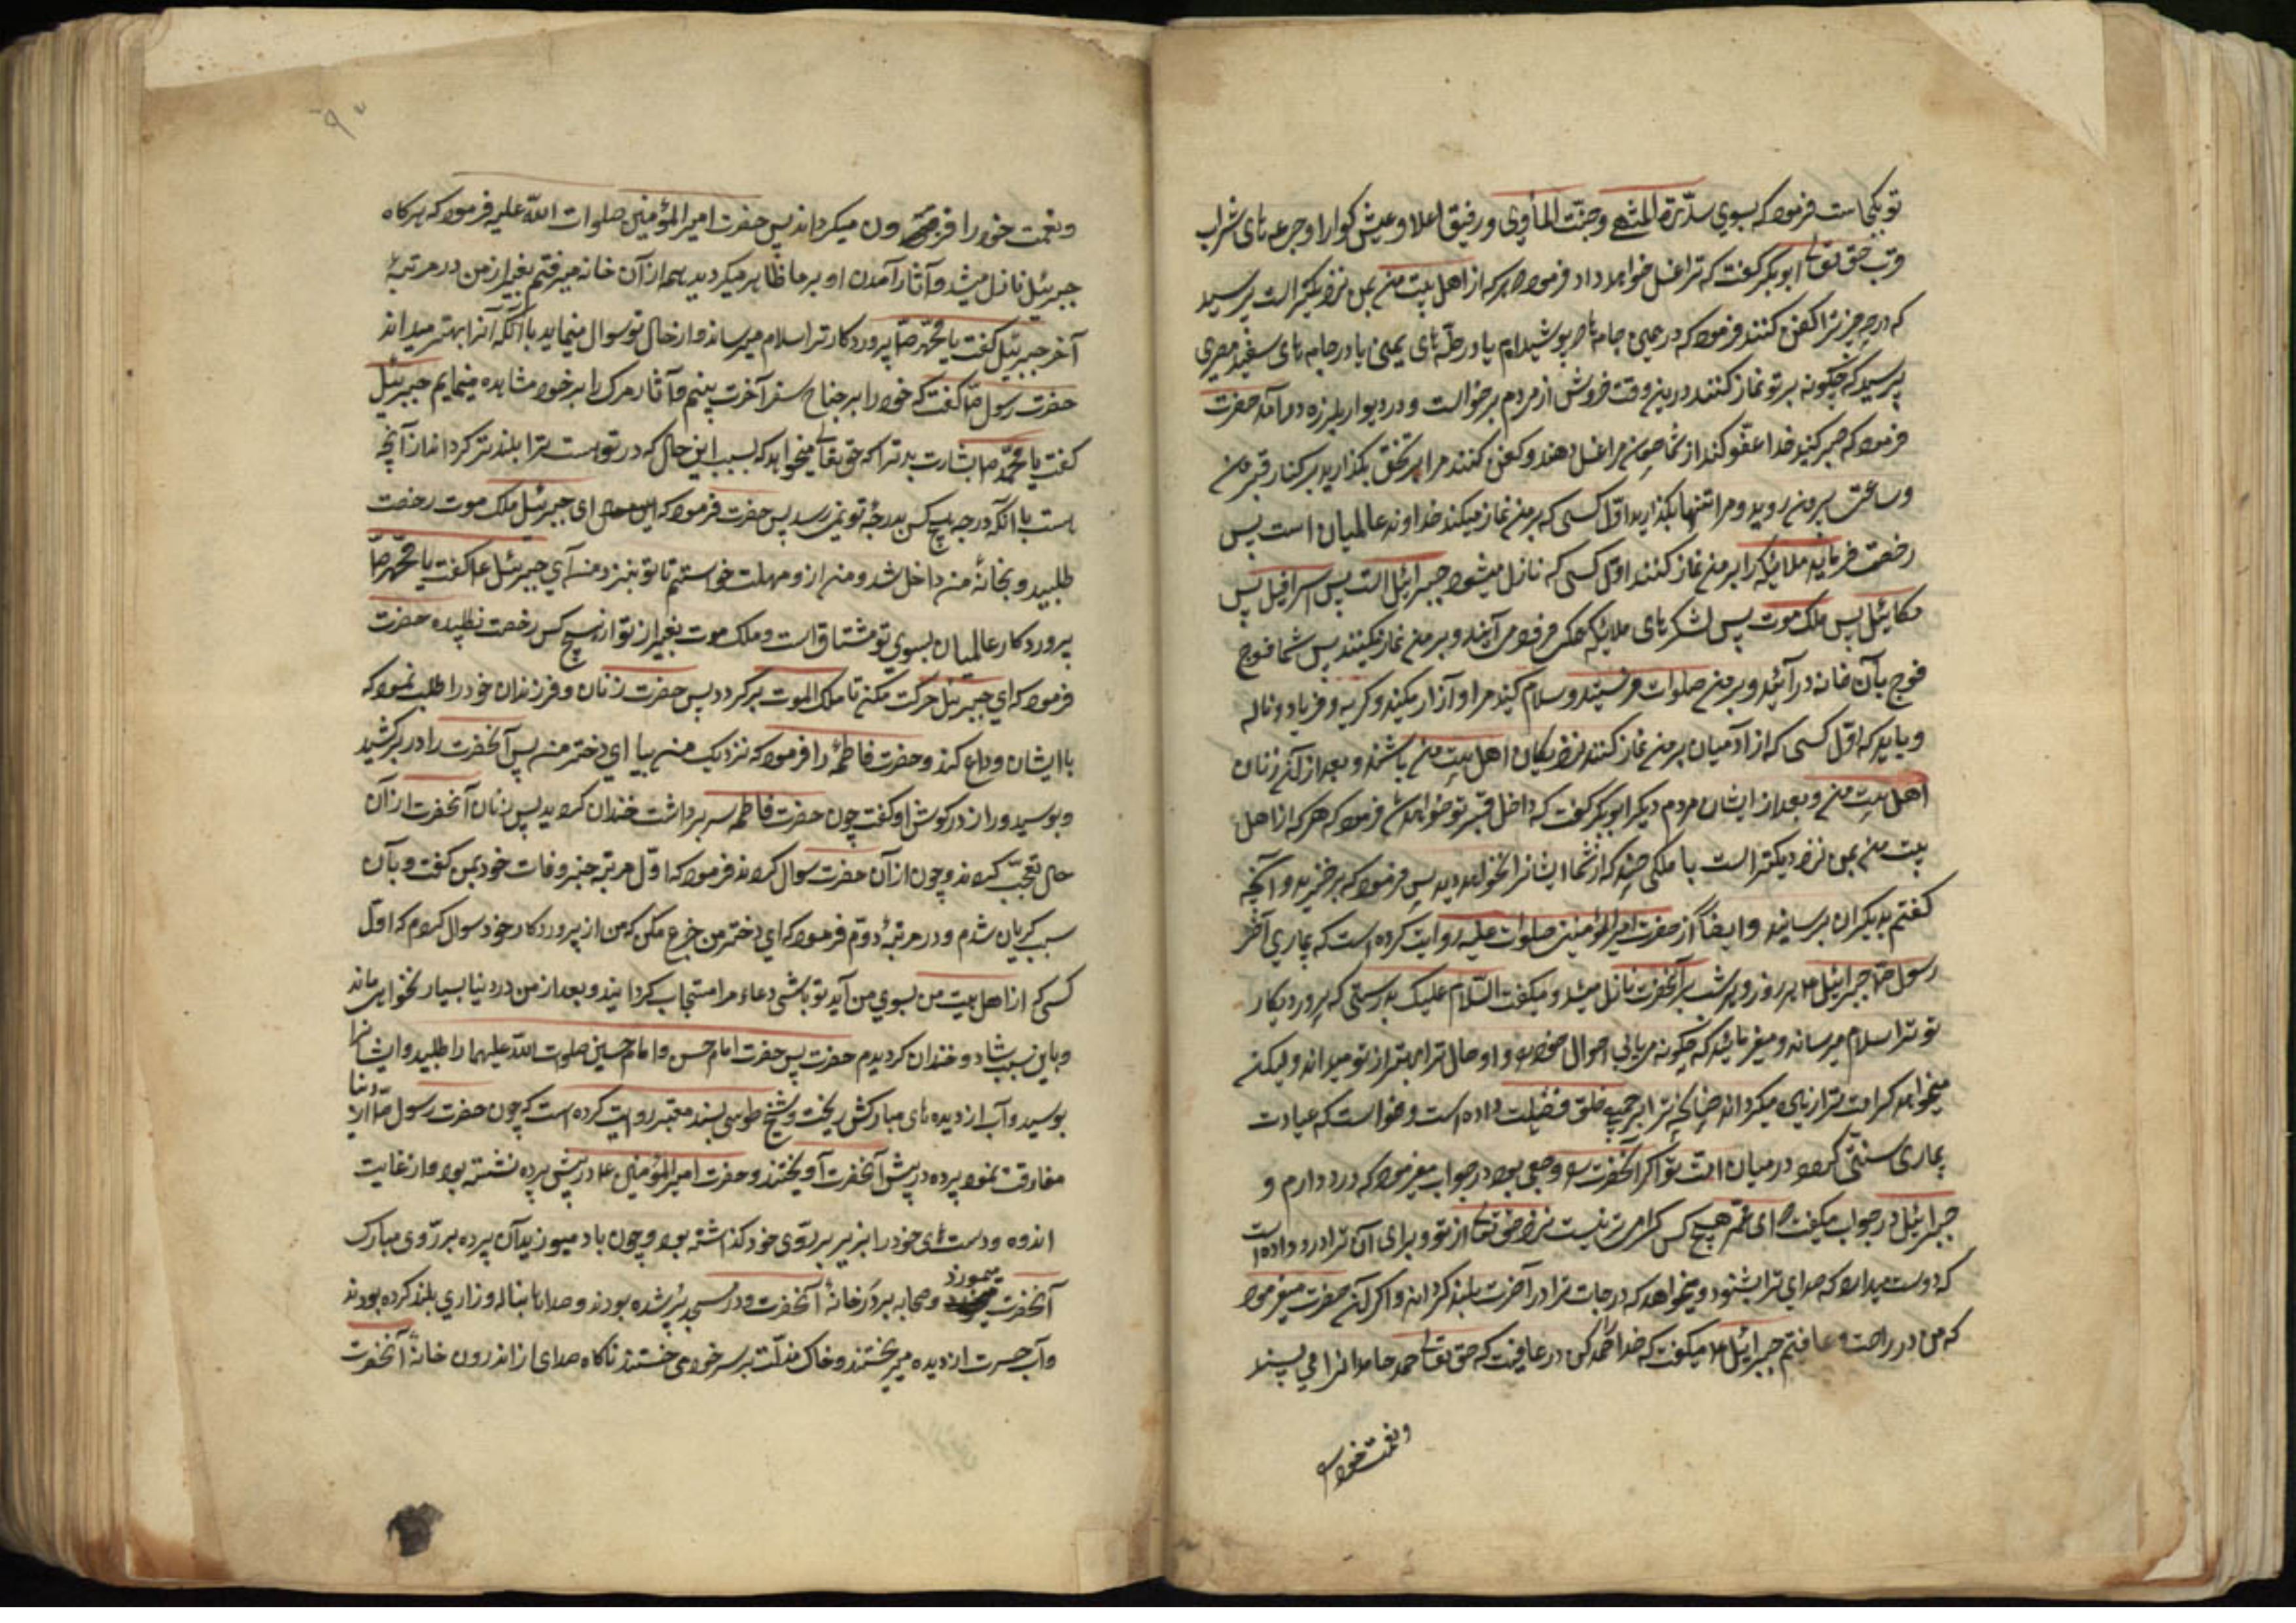 تو بکجاست فرمود که بسوی سدرة المنتهی وجنّت المأوی ورفیق اعلا وعیش کوارا وجرعه‌های شراب
قرب حق تعالی ابوبکر کفت که ترا غسل خواهد داد فرمود هر که از اهل بیت من بمن نزدیکتر است پرسید
که در چه چیز ترا کفن کنند فرمود که در همین جامه‌ها که پوشیده‌ام یا در حلّه‌های یمنی یا در جامه‌های سفید مصری
پرسید که چکونه بر تو نماز کنند در این وقت خروش از مردم برخواست ودر دیوار بلرزه درآمد حضرت
فرمود که صبر کنید خدا عفو کند از شما چون مرا غسل دهند وکفن کنند مرا بر تختی بکذارید بر کنار قبر من
وساعتی بیرون روید ومرا تنها بکذارید اوّل کسی که بر من نماز میکند خداوند عالمیان است پس
رخصت فرماید ملائکه را بر من نماز کنند اوّل کسی که نازل میشود جبرائیل است پس اسرافیل پس
مکائیل پس ملک موت پس لشکرهای ملائکه همکی فرود می‌آیند وبر من نماز میکنند پس شما فوج
فوج بآن خانه در آئید وبر من صلوات فرستید وسلام کنید مرا وآزار مکنید وکریه وفریاد وناله
وباید که اوّل کسی که از آدمیان بر من نماز کنند نزدیکان اهل بیت من باشند وبعد از آن زنان
اهل بیت من وبعد از ایشان مردم دیکر ابوبکر کفت که داخل قبر تو خواهد شد فرمود که هر که از اهل
بیت من بمن نزدیکتر است با ملکی چند که شما ایشانرا نخواهید دید پس فرمود که برخیزید وآنچه
کفتم بدیکران برسانید وایضاً از حضرت امیرالمؤمنین صلوات علیه روایت کرده است که بیماری آخر
رسول ص جبرائیل ع هر روز وهر شب بر آنحضرت نازل میشد ومیکفت السّلام علیک بدرستی که پروردیکار
تو ترا سلام میرساند ومیفرمائید که چکونه می‌یابی احوال خود را واو حال ترا بهتر از تو میداند ولیکن
میخواهد کرامت ترا زیاده میکرداند چنانچه ترا بر جمیع خلق فضیلت داده است وخواست که عیادت
بیماری سنتی کردد در میان امّت تو اکر آنحضرت را وجعی بود در جواب میفرمود که درد دارم و
جبرائیل در جواب میکفت ای محمّد هیچ کس کرامی‌تر نیست نزد حق تعالی از تو وبرای آن ترا درد داده است
که دوست میدارد که صدای ترا بشنود ومیخواهد که درجات ترا در آخرت بلند کرداند واکر آن حضرت میفرمود
که من در راحت وعافیتم جبرائیل ع میکفت که خدا را حمد کن در عافیت که حق تعالی حمد حامدانرا می پسندد
ونعمت خود را
ونعمت خود را فزون میکرداند پس حضرت امیرالمؤمنین صلوات اللّه علیه فرمود که هرکاه
جبرئیل نازل میشد وآثار آمدن او بر ما ظاهر میکردید همه از آن خانه میرفتم بغیر از من در مرتبۀ
آخر جبرئیل کفت یا محمّد ص پروردکار ترا سلام میرساند واز حال تو سوال مینماید با آنکه آنرا بهتر میداند
حضرت رسول ص کفت که خود را بر جناح سفر آخرت بینم وآثار مرک را بر خود مشاهده مینمایم جبرئیل
کفت یا محمّد ص بشارت بد ترا که حق تعالی میخواهد که بسبب این حال که در تو هست ترا بلندتر کرداند از آنچه
هست با آنکه درجه هیچ کس بدرجۀ تو نمی رسد پس حضرت فرمود که ای جبرئیل ملک موت رخصت
طلبید وبخانۀ من داخل شد ومن از و مهلت خواستم تا تو بنزد من آی جبرئیل ع کفت یا محمّد ص
پروردکار عالمیان بسوی تو مشتاق است وملک موت بغیر از تو از هیچ کس رخصت نطلبیده حضرت
فرمود که ای جبرئیل حرکت مکن تا ملک الموت برکردد پس حضرت زنان وفرزندان خود را طلب نمود که
با ایشان وداع کند وحضرت فاطمه را فرمود که نزدیک من بیا ای دختر من پس آنحضرت را در برکشید
وبوسید وراز در کوش او کفت چون حضرت فاطمه سر برداشت خندان کردید پس زنان آنحضرت از آن
حال تعجّب کردند وچون از آن حضرت سوال کردند فرمود که اوّل مرتبه خبر وفات خود بمن کفت وبآن
سبب کریان شدم ودر مرتبۀ دوّم فرمود که ای دختر من جزع مکن که من از پروردکار خود سوال کردم که اوّل
کسی که از اهل بیت من بسوی من آید تو باشی دعاء مرا مستجاب کردانید وبعد از من در دنیا بسیار نخواهی ماند
وباین سبب شاد وخندان کردیدم حضرت پس حضرت امام حسن وامام حسین صلوات اللّه علیهما را طلبید وایشانرا
بوسید وآب از دیده‌های مبارکش ریخت وشیخ طوسی بسند معتبر روایت کرده است که چون حضرت رسول ص از دنیا
مفارقت نمود پرده در پیش آنحضرت آویختند وحضرت امیرالمؤمنین ع در پیش پرده نشسته بود واز غایت
اندوه ودستهای خود را بزیر بر روی خود کذاشته بود وچون باد میوزید آن پرده بر روی مبارک
آنحضرت میخورد وصحابه بر در خانۀ آنحضرت ودر مسجد پر شده بودند وصداها بناله وزاری بلند کرده بودند
وآب حسرت از دیده میریختند وخاک مذلّت بر سر خود می ریختند ناکاه صدای از اندرون خانۀ آنحضرت